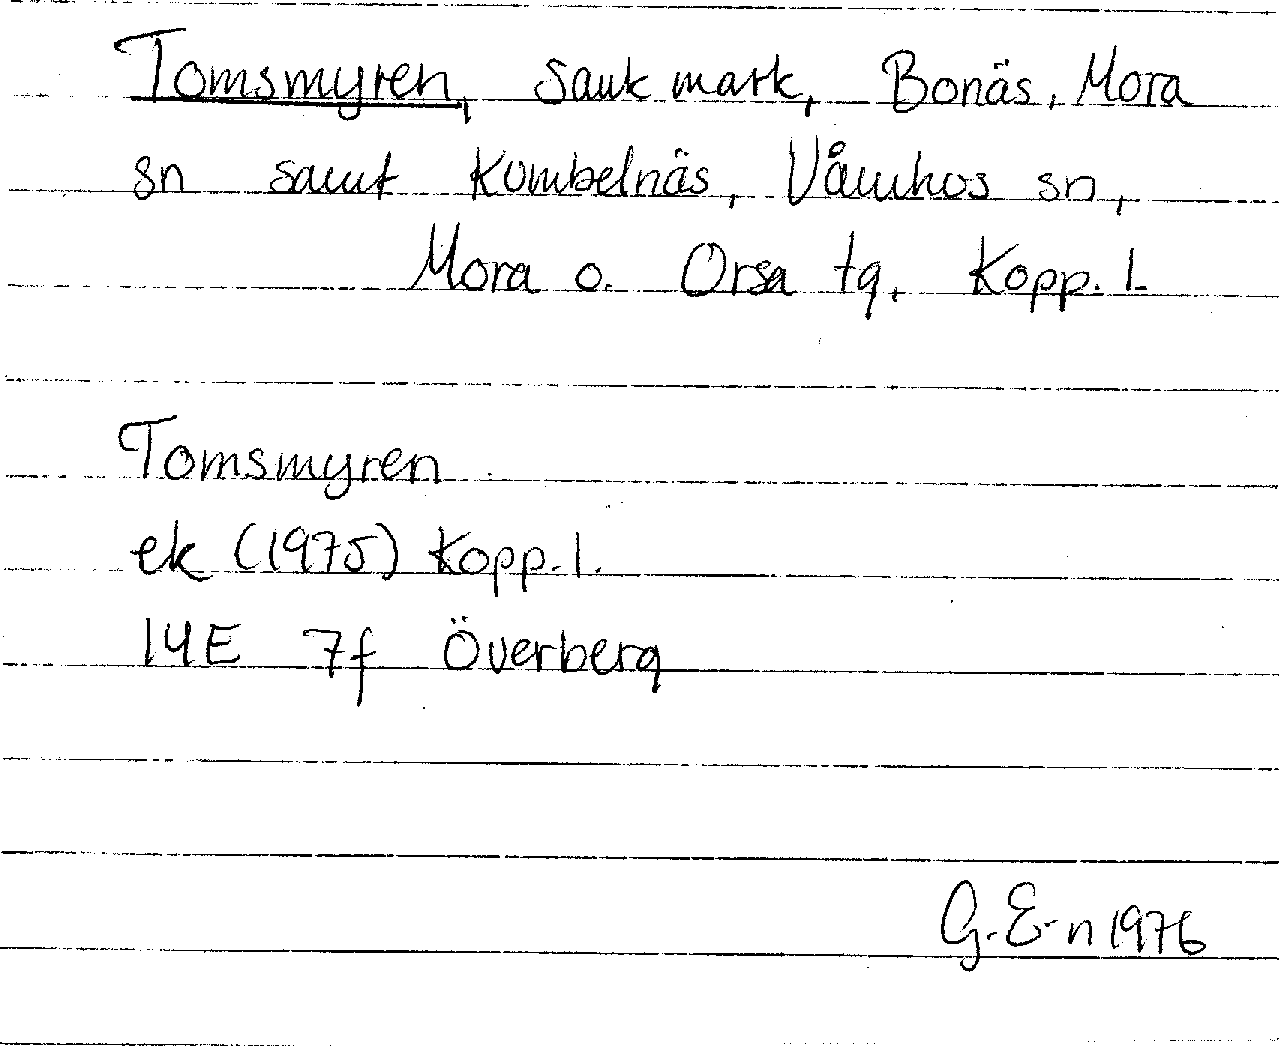 Tomsmyren, sank mark, Bonäs, Mora
sn samt Kumbelnäs, Våmhus sn,
Mora o. Orsa tg, Kopp. l.
Tomsmyren
ek (1975) Kopp. l.
14E 7f Överberg
G. E-n 1976